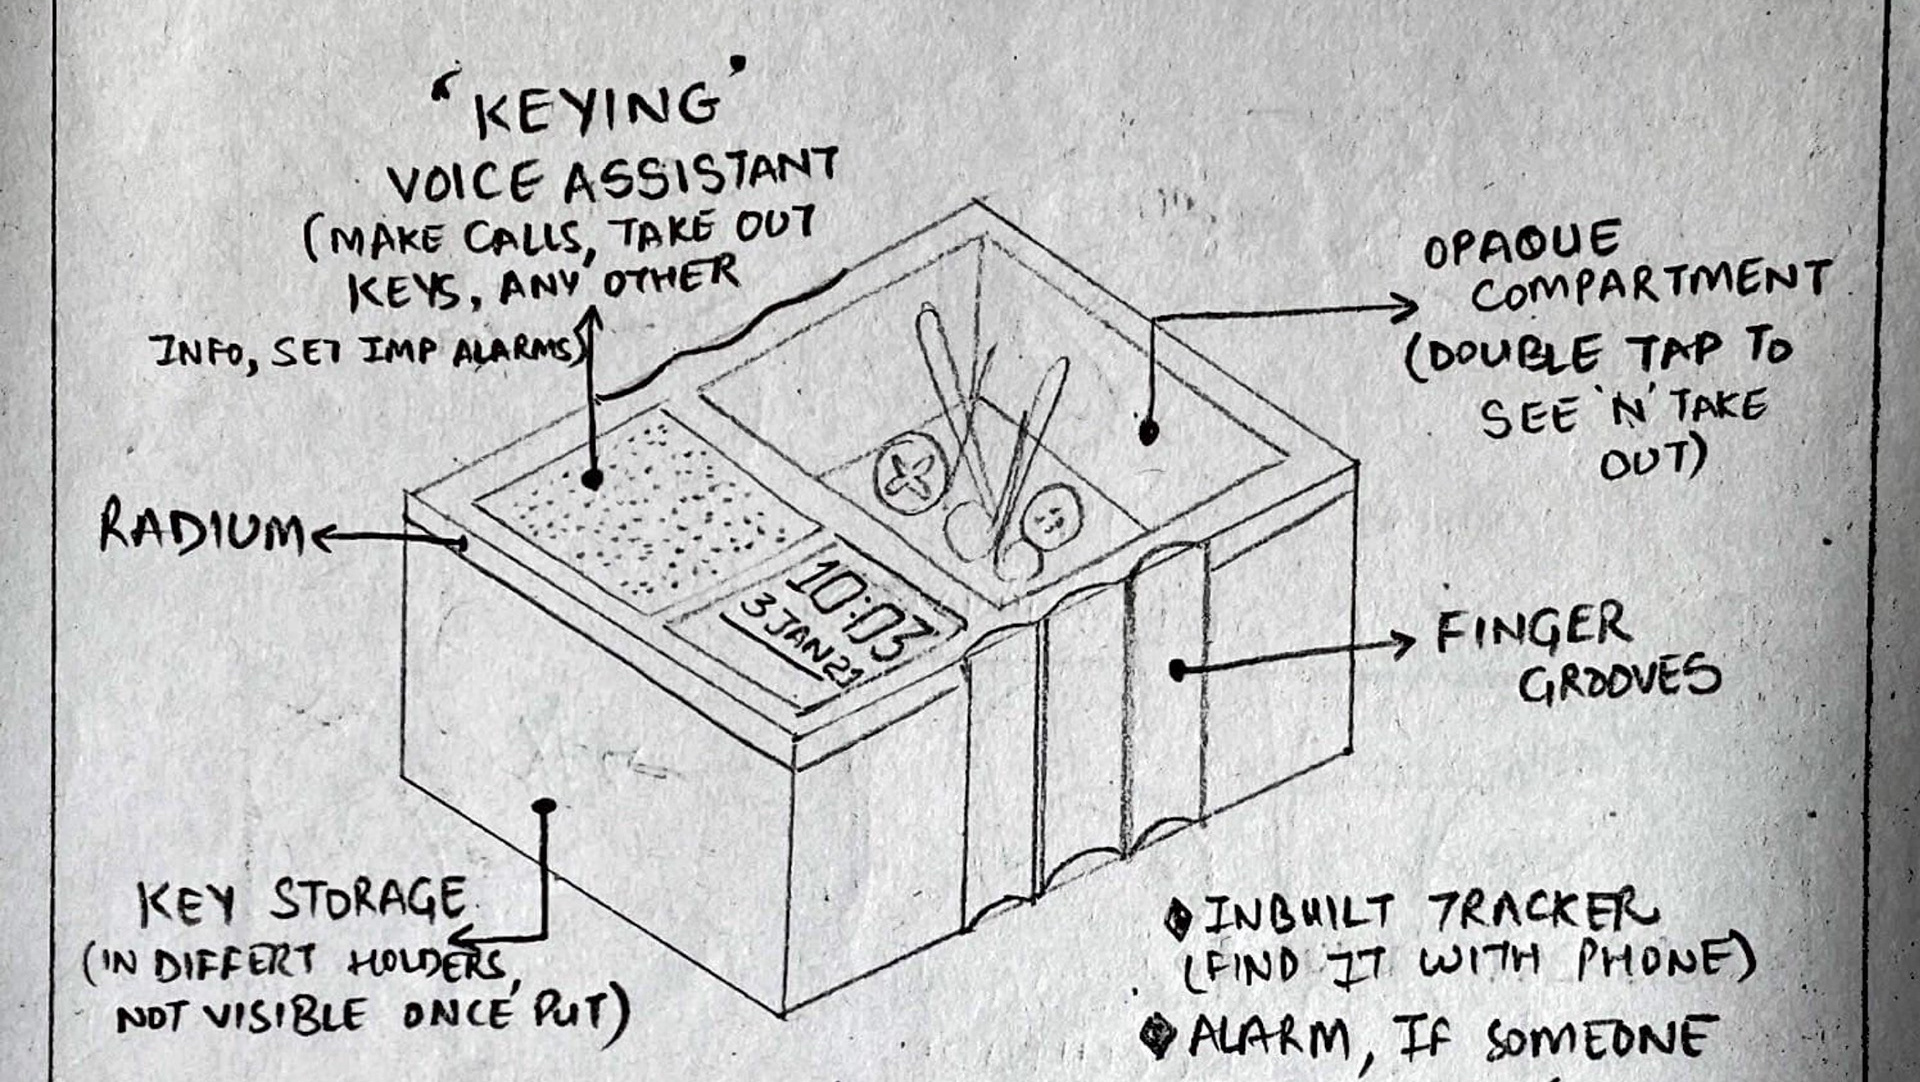 'KEYING'
VOICE ASSISTANT
(MAKE CALLS, TAKE OUT
KEYS, ANY OTHER
INFO, SET IMP ALARMS)
OPAQUE
COMPARTMENT
(DOUBLE TAP TO
SEE 'N' TAKE
OUT)
RADIUM
10:03
3 JAN 21
FINGER
GROOVES
KEY STORAGE
(IN DIFFERT HOLDERS,
NOT VISIBLE ONCE PUT)
INBUILT TRACKER
(FIND IT WITH PHONE)
ALARM, IF SOMEONE